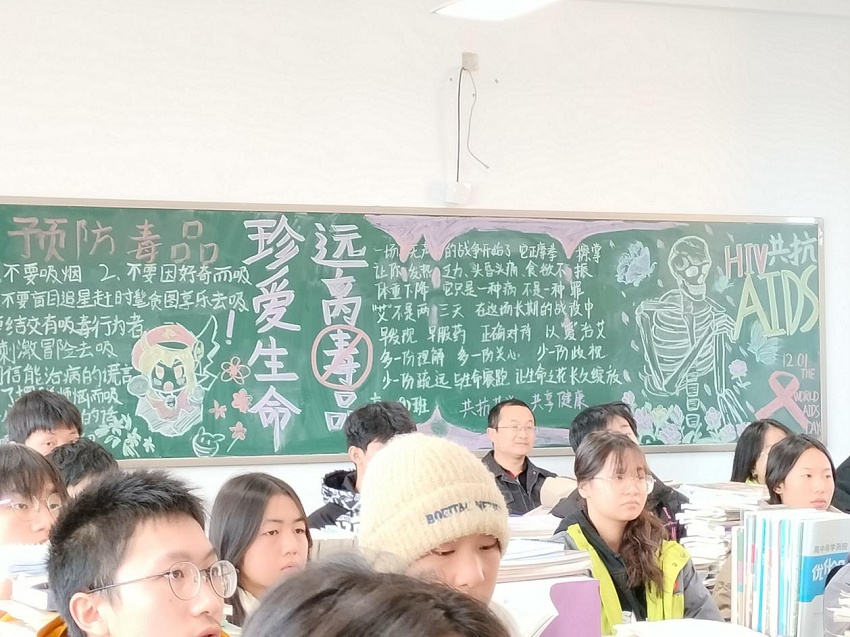 预防毒品
不要吸烟 2、不要因好奇而吸
不要盲目追星赶时髦贪图享乐去吸
结交有吸毒行为者
刺激冒险去吸
信能治病的谎言
珍爱生命
远离毒品
!
一场无声的战争开始了 它正摩拳擦掌
让你发热 乏力、头昏头痛 食欲不振
体重下降 它只是一种病 不是一种罪
艾不是两三天 在这场长期的战役中
早发现 早服药 正确对待 以爱治艾
多一份理解 多一份关心 少一份歧视
少一份疏远 让生命之花长久绽放
班 共抗 共享健康
HIV共抗
AIDS
12.01
THE
WORLD
AIDS
DAY
BOCTAL NE
高中导学测控
优化